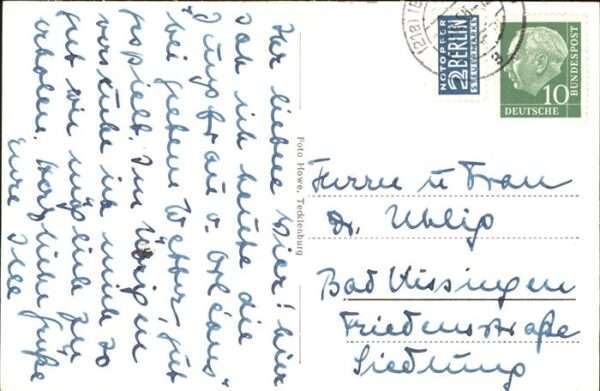 Ihr lieben Vier! Hier
sah ich heute die
Jungfrau v. Orleans
bei gutem Wetter, gut
gespielt. Im Übrigen
versuche ich mich so
gut wie möglich zu
erholen. Herzliche Grüße
Eure Ilse
Foto Howe, Tecklenburg
(21a)
NOTOPFER
2 BERLIN
STEUERMARKE
10
DEUTSCHE
BUNDESPOST
Herrn u Frau
Dr. Uhlig
Bad Kissingen
Friedensstraße
Siedlung